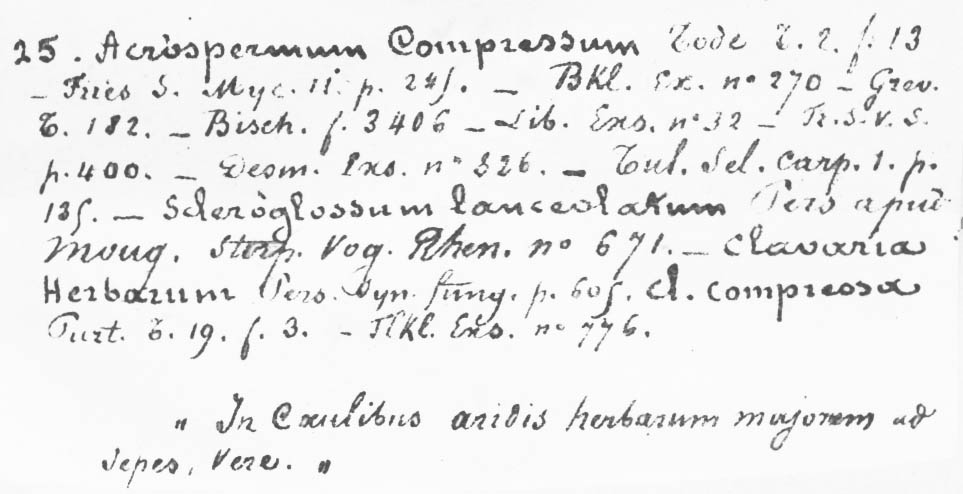 25. Acrospermum Compressum Tode T. 2. f. 13
– Fries S. Myc. II. p. 245. – Bkl. Ex. nº 270 – Grev.
T. 182. – Bisch. f. 3406 – Lib. Exs. nº 32 – Fr. S. V. S.
p. 400. – Desm. Exs. nº 326. – Tul. Sel. Carp. 1. p.
135. – Scleroglossum lanceolatum Pers apud
Moug. Stirp. Vog. Rhen. nº 671. – Clavaria
Herbarum Pers. Syn. fung. p. 605. Cl. compressa
Purt. T. 19. f. 3. – Flkl. Exs. nº 776.
„ In Caulibus aridis herbarum majorem ad
sepes, Vere. „